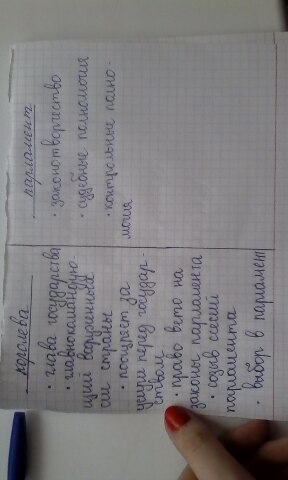 королева
• глава государства
• главнокомандую-
щий вооруженных
сил страны
• поощряет за
услуги перед государ-
ством
• право вето на
законы парламента
• созыв сессий
парламента
• выбор в парламент
парламент
• законотворчество
• судебные полномочия
• контрольные полно-
мочия